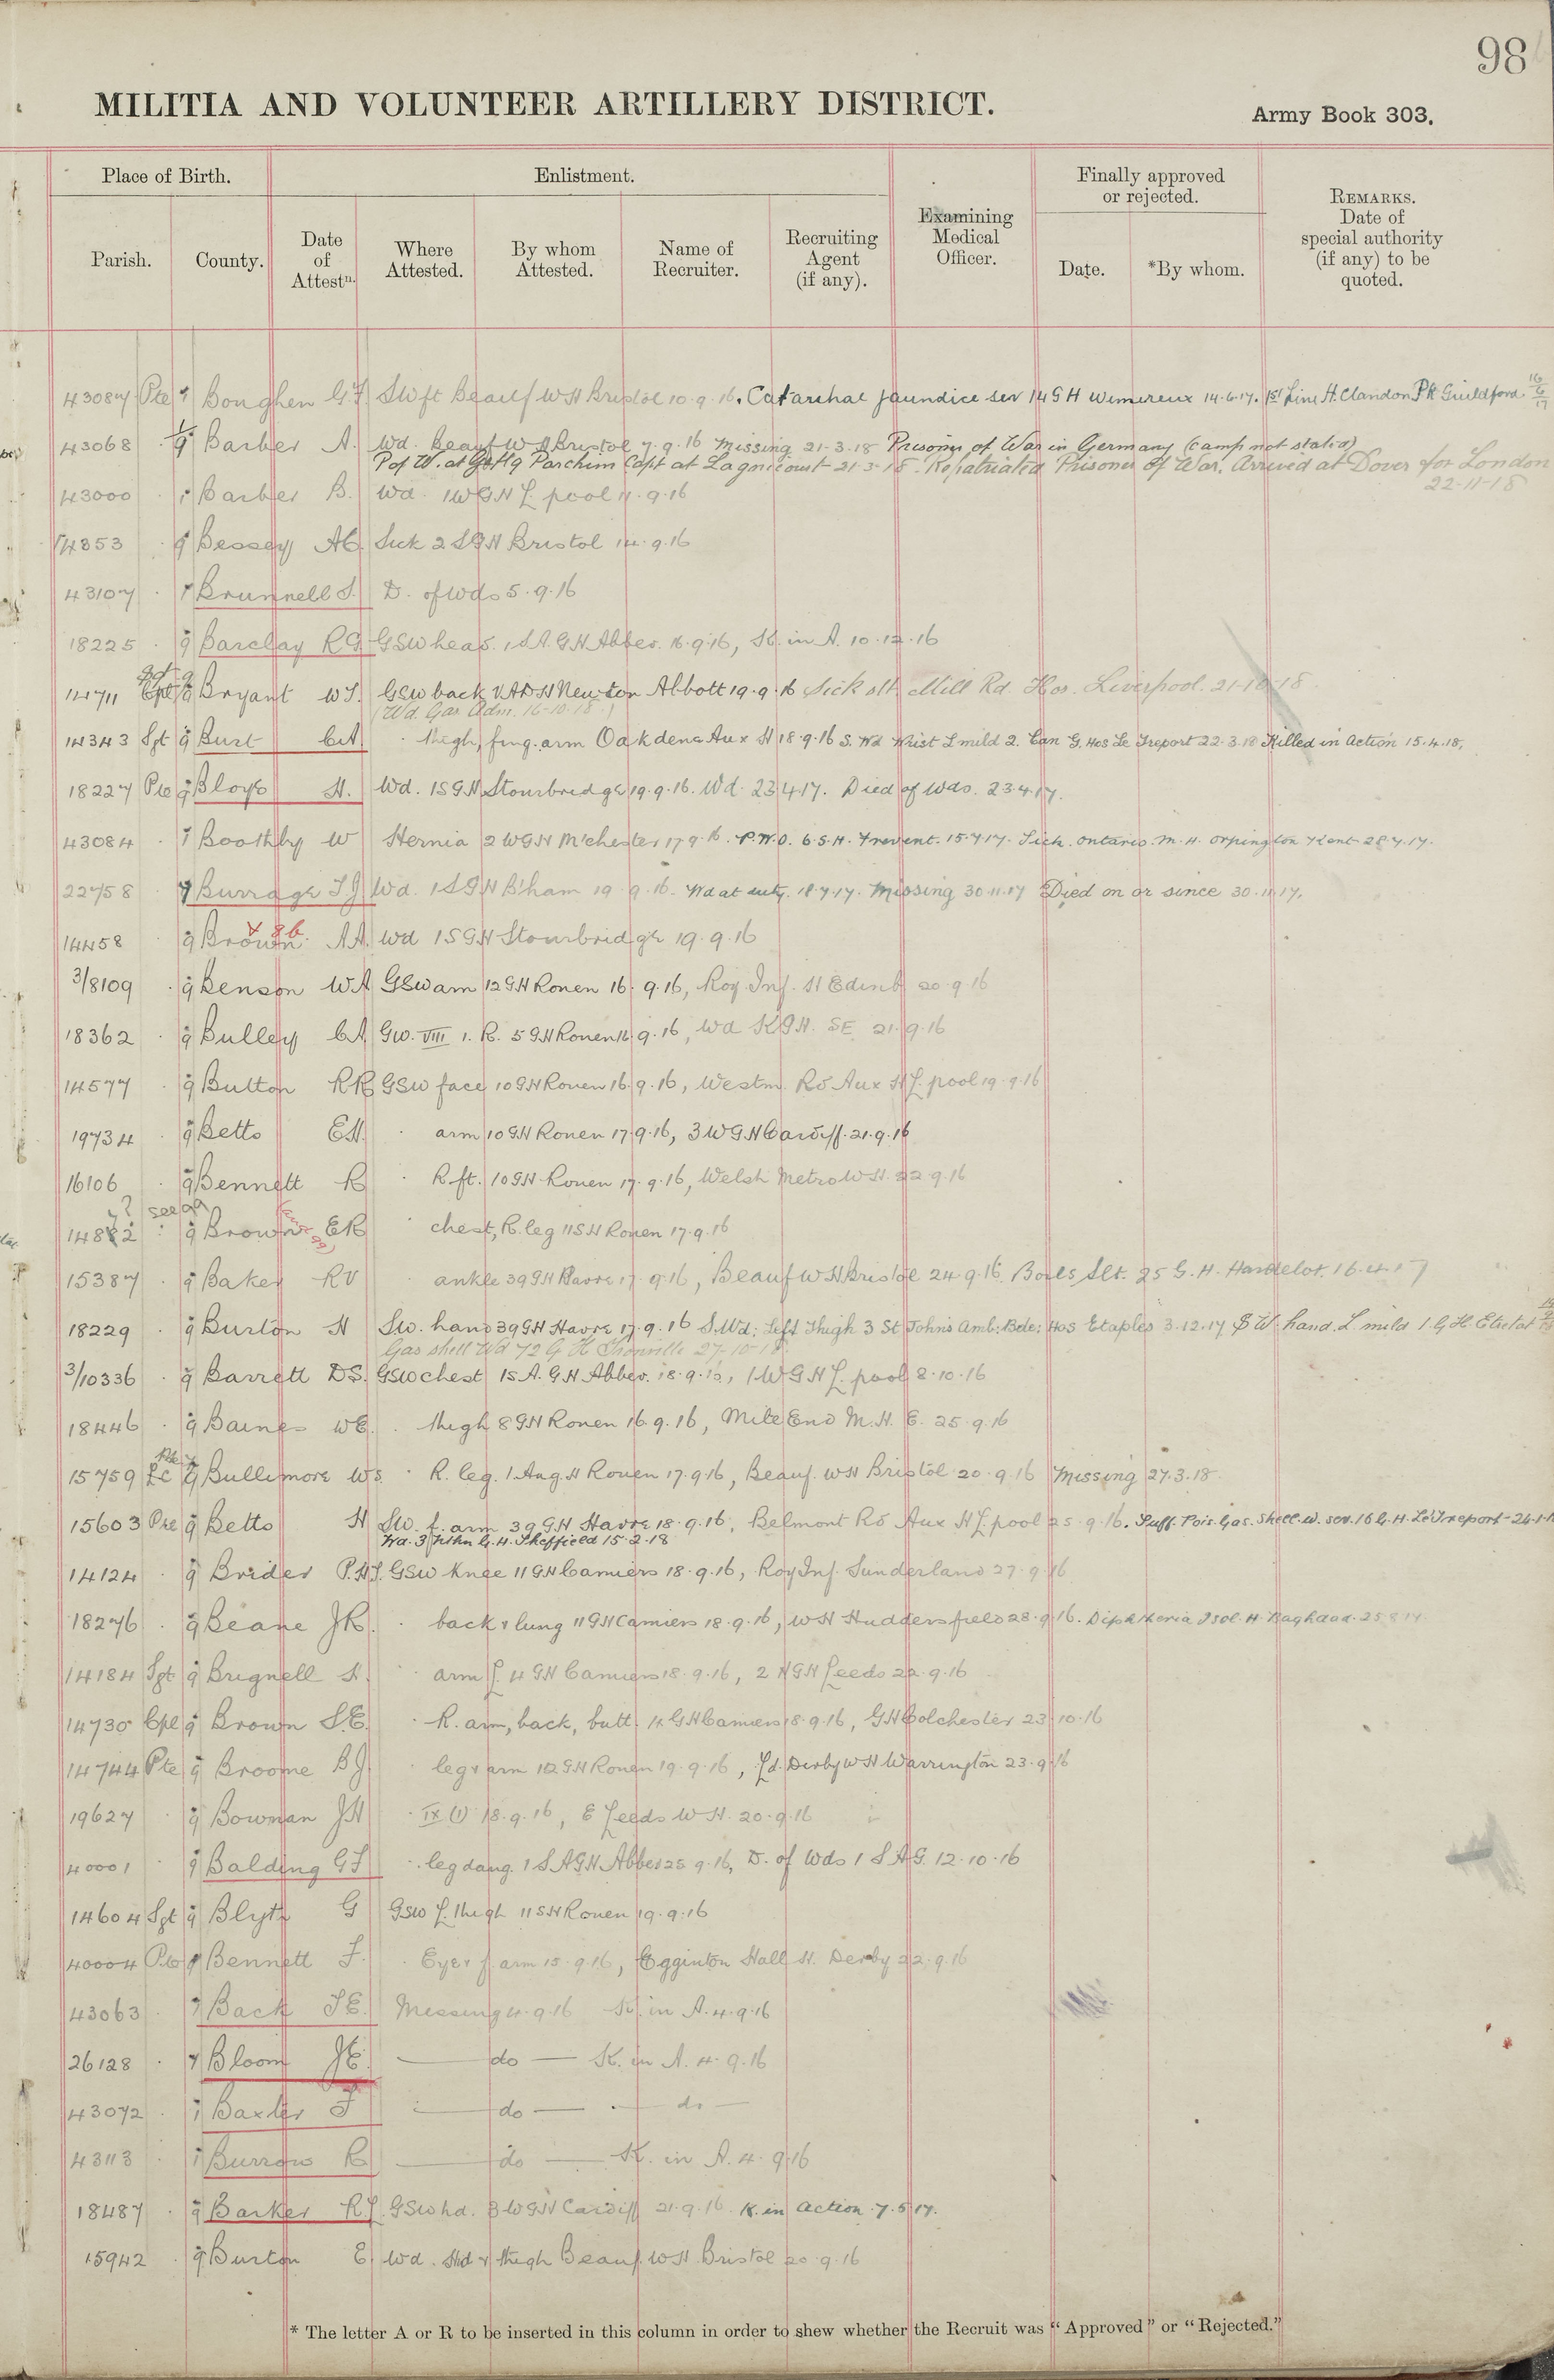 98
MILITIA AND VOLUNTEER ARTILLERY DISTRICT.
Army Book 303.
Place of Birth.
Enlistment.
Finally approved or rejected.
Parish.
County.
Date of Attestn.
Where Attested.
By whom Attested.
Name of Recruiter.
Recruiting Agent (if any).
Examining Medical Officer.
Date.
*By whom.
REMARKS. Date of special authority (if any) to be quoted.
43087 Pte 7 Boughen G.F. Beauf W H Bristol 10.9.16. Catarrhal Jaundice sev 14 G H Wimereux 14.6.17. 1st Line H. Clandon Pk Guildford 16/6/17
43068 Barber A. Wd. Beauf W H Bristol 7.9.16 Missing 21-3-18 Prisoner of War in Germany (camp not stated)
P of W. at Parchim Capt at Lagnicourt 21-3-18. Repatriated Prisoner of War. Arrived at Dover for London 22-11-18
43000 Barber B. Wd. 1 W G H L. pool 11.9.16
14853 9 Bessey A C Sick 2 S G H Bristol 14.9.16
43107 7 Brunnell S. D. of Wds 5.9.16
18225 9 Barclay R G GSW head. 1 S A. G H Abbev. 16.9.16, K. in A. 10.12.16
14711 Cpl Bryant W S. GSW back V A D H Newton Abbott 19.9.16 Sick Mill Rd. Hos. Liverpool. 21-10-18
(Wd. Gas Adm. 16-10-18.)
14343 Sgt 9 Burt C A thigh, fing. arm Oakdene Aux H 18.9.16 S. Wd Wrist L mild 2. Can G. Hos Le Treport 22.3.18 Killed in Action 15.4.18.
18227 Pte 9 Bloys H. Wd. 1 S G H Stourbridge 19.9.16. Wd. 23.4.17. Died of Wds. 23.4.17.
43084 7 Boothby W Hernia 2 W G H M'chester 17.9.16. P.U.O. 6. S. H. Frevent. 15.7.17. Sick. Ontario. M. H. Orpington Kent 28.7.17.
22758 7 Burrage Wd. 1 S G H B'ham 19.9.16. Wd at duty. 18.7.17. Missing 30.11.17 Died on or since 30.11.17.
14458 9 Brown A A. Wd 1 S G H Stourbridge 19.9.16
3/8109 9 Benson W A GSW arm 12 G H Rouen 16.9.16, Roy. Inf. H Edinb 20.9.16
18362 9 Bulley C A Gw. VIII 1. R. 5 G H Rouen 16.9.16, Wd K G H. SE 21.9.16
14577 9 Button R R GSW face 10 G H Rouen 16.9.16, Westm. Rd Aux H L. pool 19.9.16
19734 9 Betts E H. arm 10 G H Rouen 17.9.16, 3 W G H Cardiff. 21.9.16
16106 9 Bennett R R ft. 10 G H Rouen 17.9.16, Welsh Metro W H. 22.9.16
? see 99
9 Brown E R chest, R. leg 11 S H Rouen 17.9.16
15387 9 Baker R V ankle 39 G H Havre 17.9.16, Beauf W H Bristol 24.9.16 Boils Slt. 25 G. H. Hardelot. 16.4.17
18229 9 Burton H Sw. hand 39 G H Havre 17.9.16 S. Wd; Left Thigh 3 St John's Amb: Bde: Hos Etaples 3.12.17 S W hand. L mild 1. G H Etretat
Gas shell Wd 72 G H Trouville 27-10-18
3/10336 9 Barrett D S. GSW chest 1 S A. G H Abbev. 18.9.16, 1 W G H L. pool 2.10.16
18446 9 Baines W E. thigh 8 G H Rouen 16.9.16, Mile End M. H. E. 25.9.16
15759 9 Bullimore W S. R. leg. 1 Aug. H Rouen 17.9.16, Beauf. W H Bristol 20.9.16 Missing 27.3.18
15603 Pte 9 Betts H Sw. f. arm 39 G H Havre 18.9.16, Belmont Rd Aux H L pool 25.9.16. Suff. Pois. Gas. Shell. W. sev. 16 G. H. Le Treport - 24.1.18
Wd. 3 Nthn G. H. Sheffield 15.2.18
14124 9 Brider P.H.J. GSW knee 11 G H Camiers 18.9.16, Roy Inf. Sunderland 27.9.16
18276 9 Beane J R. back & lung 11 G H Camiers 18.9.16, W H Huddersfield 28.9.16. Diphtheria Isol. H. Baghdad. 25.8.17
14184 Sgt 9 Brignell H. arm L. 4 G H Camiers 18.9.16, 2 N G H Leeds 22.9.16
14730 Cpl 9 Brown S.E. R. arm, back, butt. 4 G H Camiers 18.9.16, G H Colchester 23.10.16
14744 Pte 9 Broome B J. leg & arm 12 G H Rouen 19.9.16, Ld. Derby W H Warrington 23.9.16
19627 9 Bowman J H IX (1) 18.9.16, E Leeds W H. 20.9.16
40001 9 Balding G S leg dang. 1 S A G H Abbev 25.9.16, D. of Wds 1 S A G. 12.10.16
14604 Sgt 9 Blyth G Gsw L. thigh 11 S H Rouen 19.9.16
40004 Pte Bennett F. Eye & f. arm 15.9.16, Egginton Hall H. Derby 22.9.16
43063 7 Back Missing 4.9.16 K. in A. 4.9.16
26128 7 Bloom J E. — do — K. in A. 4.9.16
43072 7 Baxter F — do — — do —
43113 7 Burrow R — do — K. in A. 4.9.16
18487 9 Barker R L. GSW hd. 3 W G H Cardiff 21.9.16 K. in action. 7.5.17.
15942 9 Burton E Wd. Hd & thigh Beauf. W H Bristol 20.9.16
* The letter A or R to be inserted in this column in order to shew whether the Recruit was "Approved" or "Rejected."